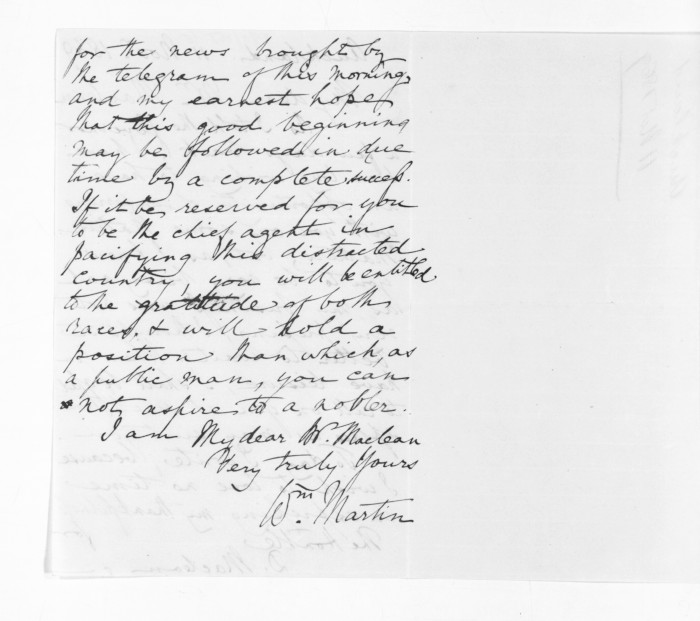 for the news brought by
the telegram of this morning,
and my earnest hope
that this good beginning
may be followed in due
time by a complete success.
If it be reserved for you
to be the chief agent in
pacifying this distracted
country, you will be entitled
to the gratitude of both
races. & will hold a
position than which, as
a public man, you can
not aspire to a nobler.
I am My dear Mr. Maclean
Very truly Yours
Wm. Martin
The Honble
D. Maclean